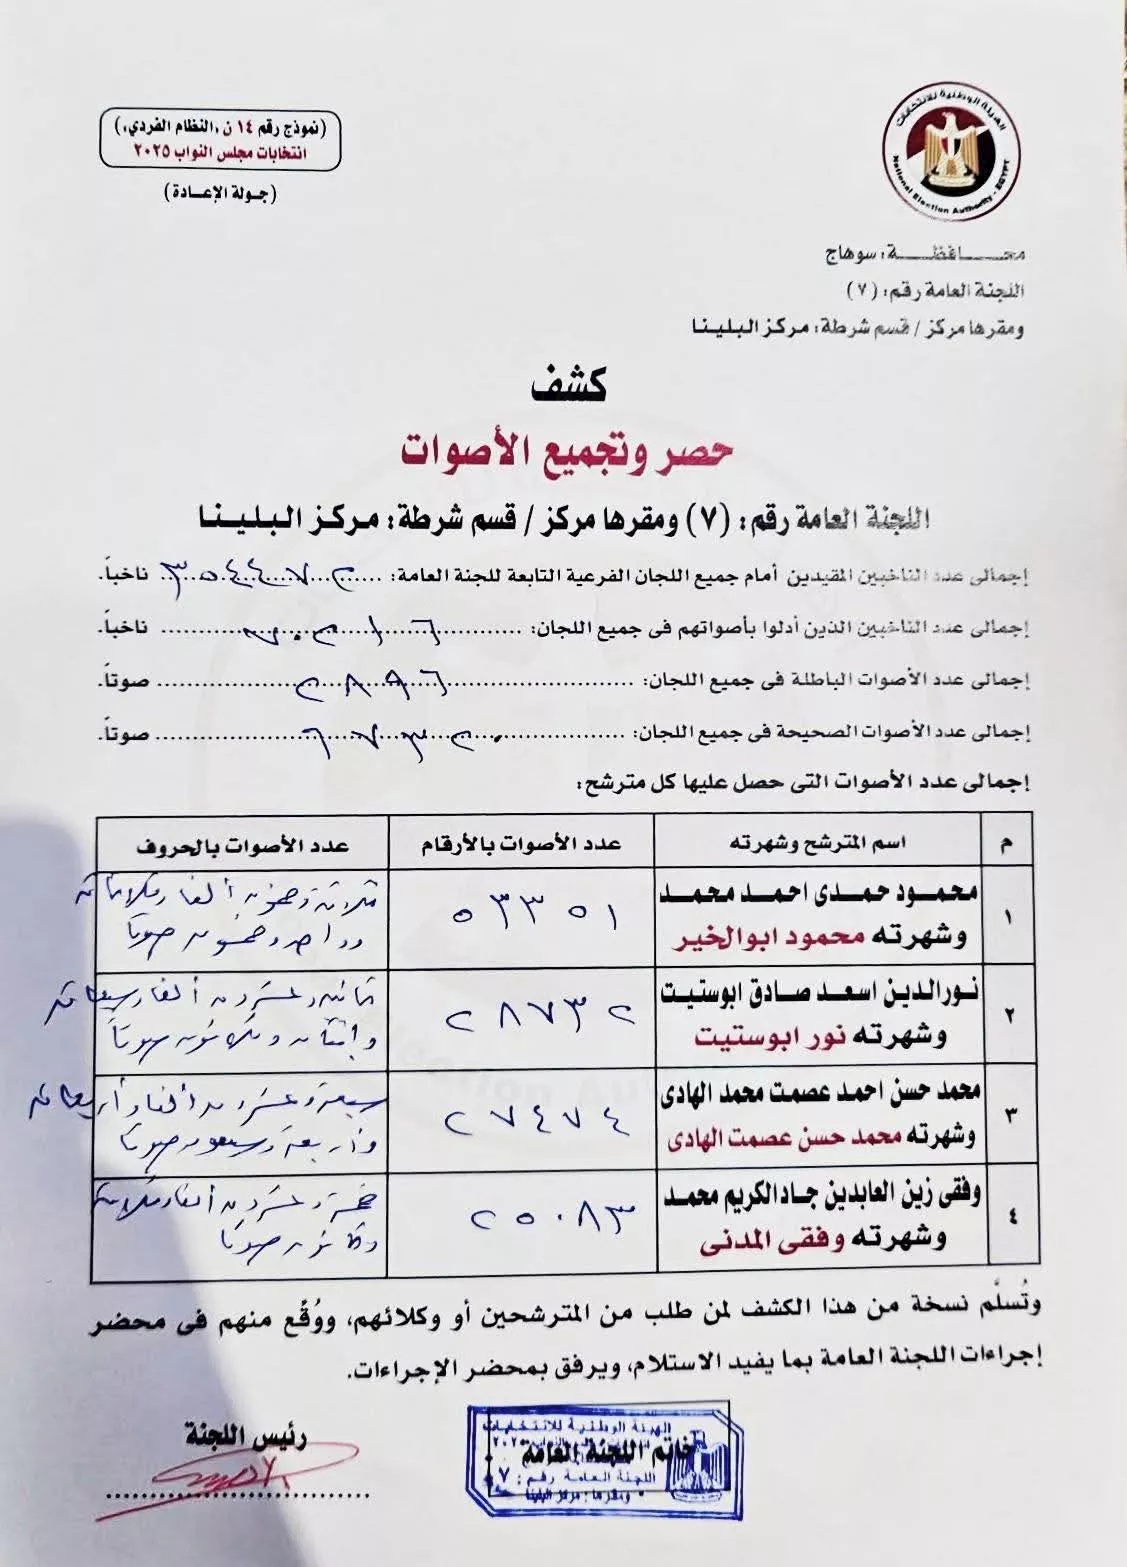 الهيئة الوطنية للانتخابات
National Election Authority - EGYPT
(نموذج رقم ١٤ ن، النظام الفردي،)
انتخابات مجلس النواب ٢٠٢٥
(جولة الإعادة)
محافظة: سوهاج
اللجنة العامة رقم: (٧)
ومقرها مركز / قسم شرطة: مركز البلينا
كشف
حصر وتجميع الأصوات
اللجنة العامة رقم: (٧) ومقرها مركز / قسم شرطة: مركز البلينا
إجمالى عدد الناخبين المقيدين أمام جميع اللجان الفرعية التابعة للجنة العامة: ٣٥٤٤٧٢ ناخباً.
إجمالى عدد الناخبين الذين أدلوا بأصواتهم فى جميع اللجان: ٧٠٢١٦ ناخباً.
إجمالى عدد الأصوات الباطلة فى جميع اللجان: ٢٨٩٦ صوتاً.
إجمالى عدد الأصوات الصحيحة فى جميع اللجان: ٦٧٣٢٠ صوتاً.
إجمالى عدد الأصوات التى حصل عليها كل مترشح:
م اسم المترشح وشهرته عدد الأصوات بالأرقام عدد الأصوات بالحروف
١ محمود حمدى احمد محمد ٥٣٣٥١ ثلاثة وخمسون ألفا وثلاثمائة
وشهرته محمود ابوالخير وواحد وخمسون صوتا
٢ نورالدين اسعد صادق ابوستيت ٢٨٧٣٢ ثمانية وعشرون ألفا وسبعمائة
وشهرته نور ابوستيت واثنان وثلاثون صوتاً
٣ محمد حسن احمد عصمت محمد الهادى ٢٧٤٧٤ سبعة وعشرون ألفا وأربعمائة
وشهرته محمد حسن عصمت الهادى وأربعة وسبعون صوتا
٤ وفقى زين العابدين جاد الكريم محمد ٢٥٠٨٣ خمسة وعشرون ألفا وثلاثة
وشهرته وفقى المدنى وثمانون صوتا
وتُسلَّم نسخة من هذا الكشف لمن طلب من المترشحين أو وكلائهم، ووُقِّع منهم فى محضر
إجراءات اللجنة العامة بما يفيد الاستلام، ويرفق بمحضر الإجراءات.
رئيس اللجنة
خاتم اللجنة العامة
الهيئة الوطنية للانتخابات
اللجنة العامة رقم: ٧
ومقرها: مركز البلينا